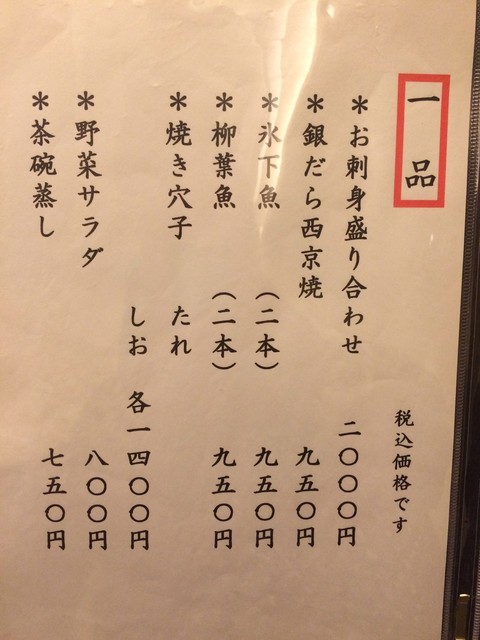 一品
税込価格です
＊お刺身盛り合わせ 二〇〇〇円
＊銀だら西京焼 九五〇円
＊氷下魚 （二本） 九五〇円
＊柳葉魚 （二本） 九五〇円
＊焼き穴子 たれ
しお 各一四〇〇円
＊野菜サラダ 八〇〇円
＊茶碗蒸し 七五〇円